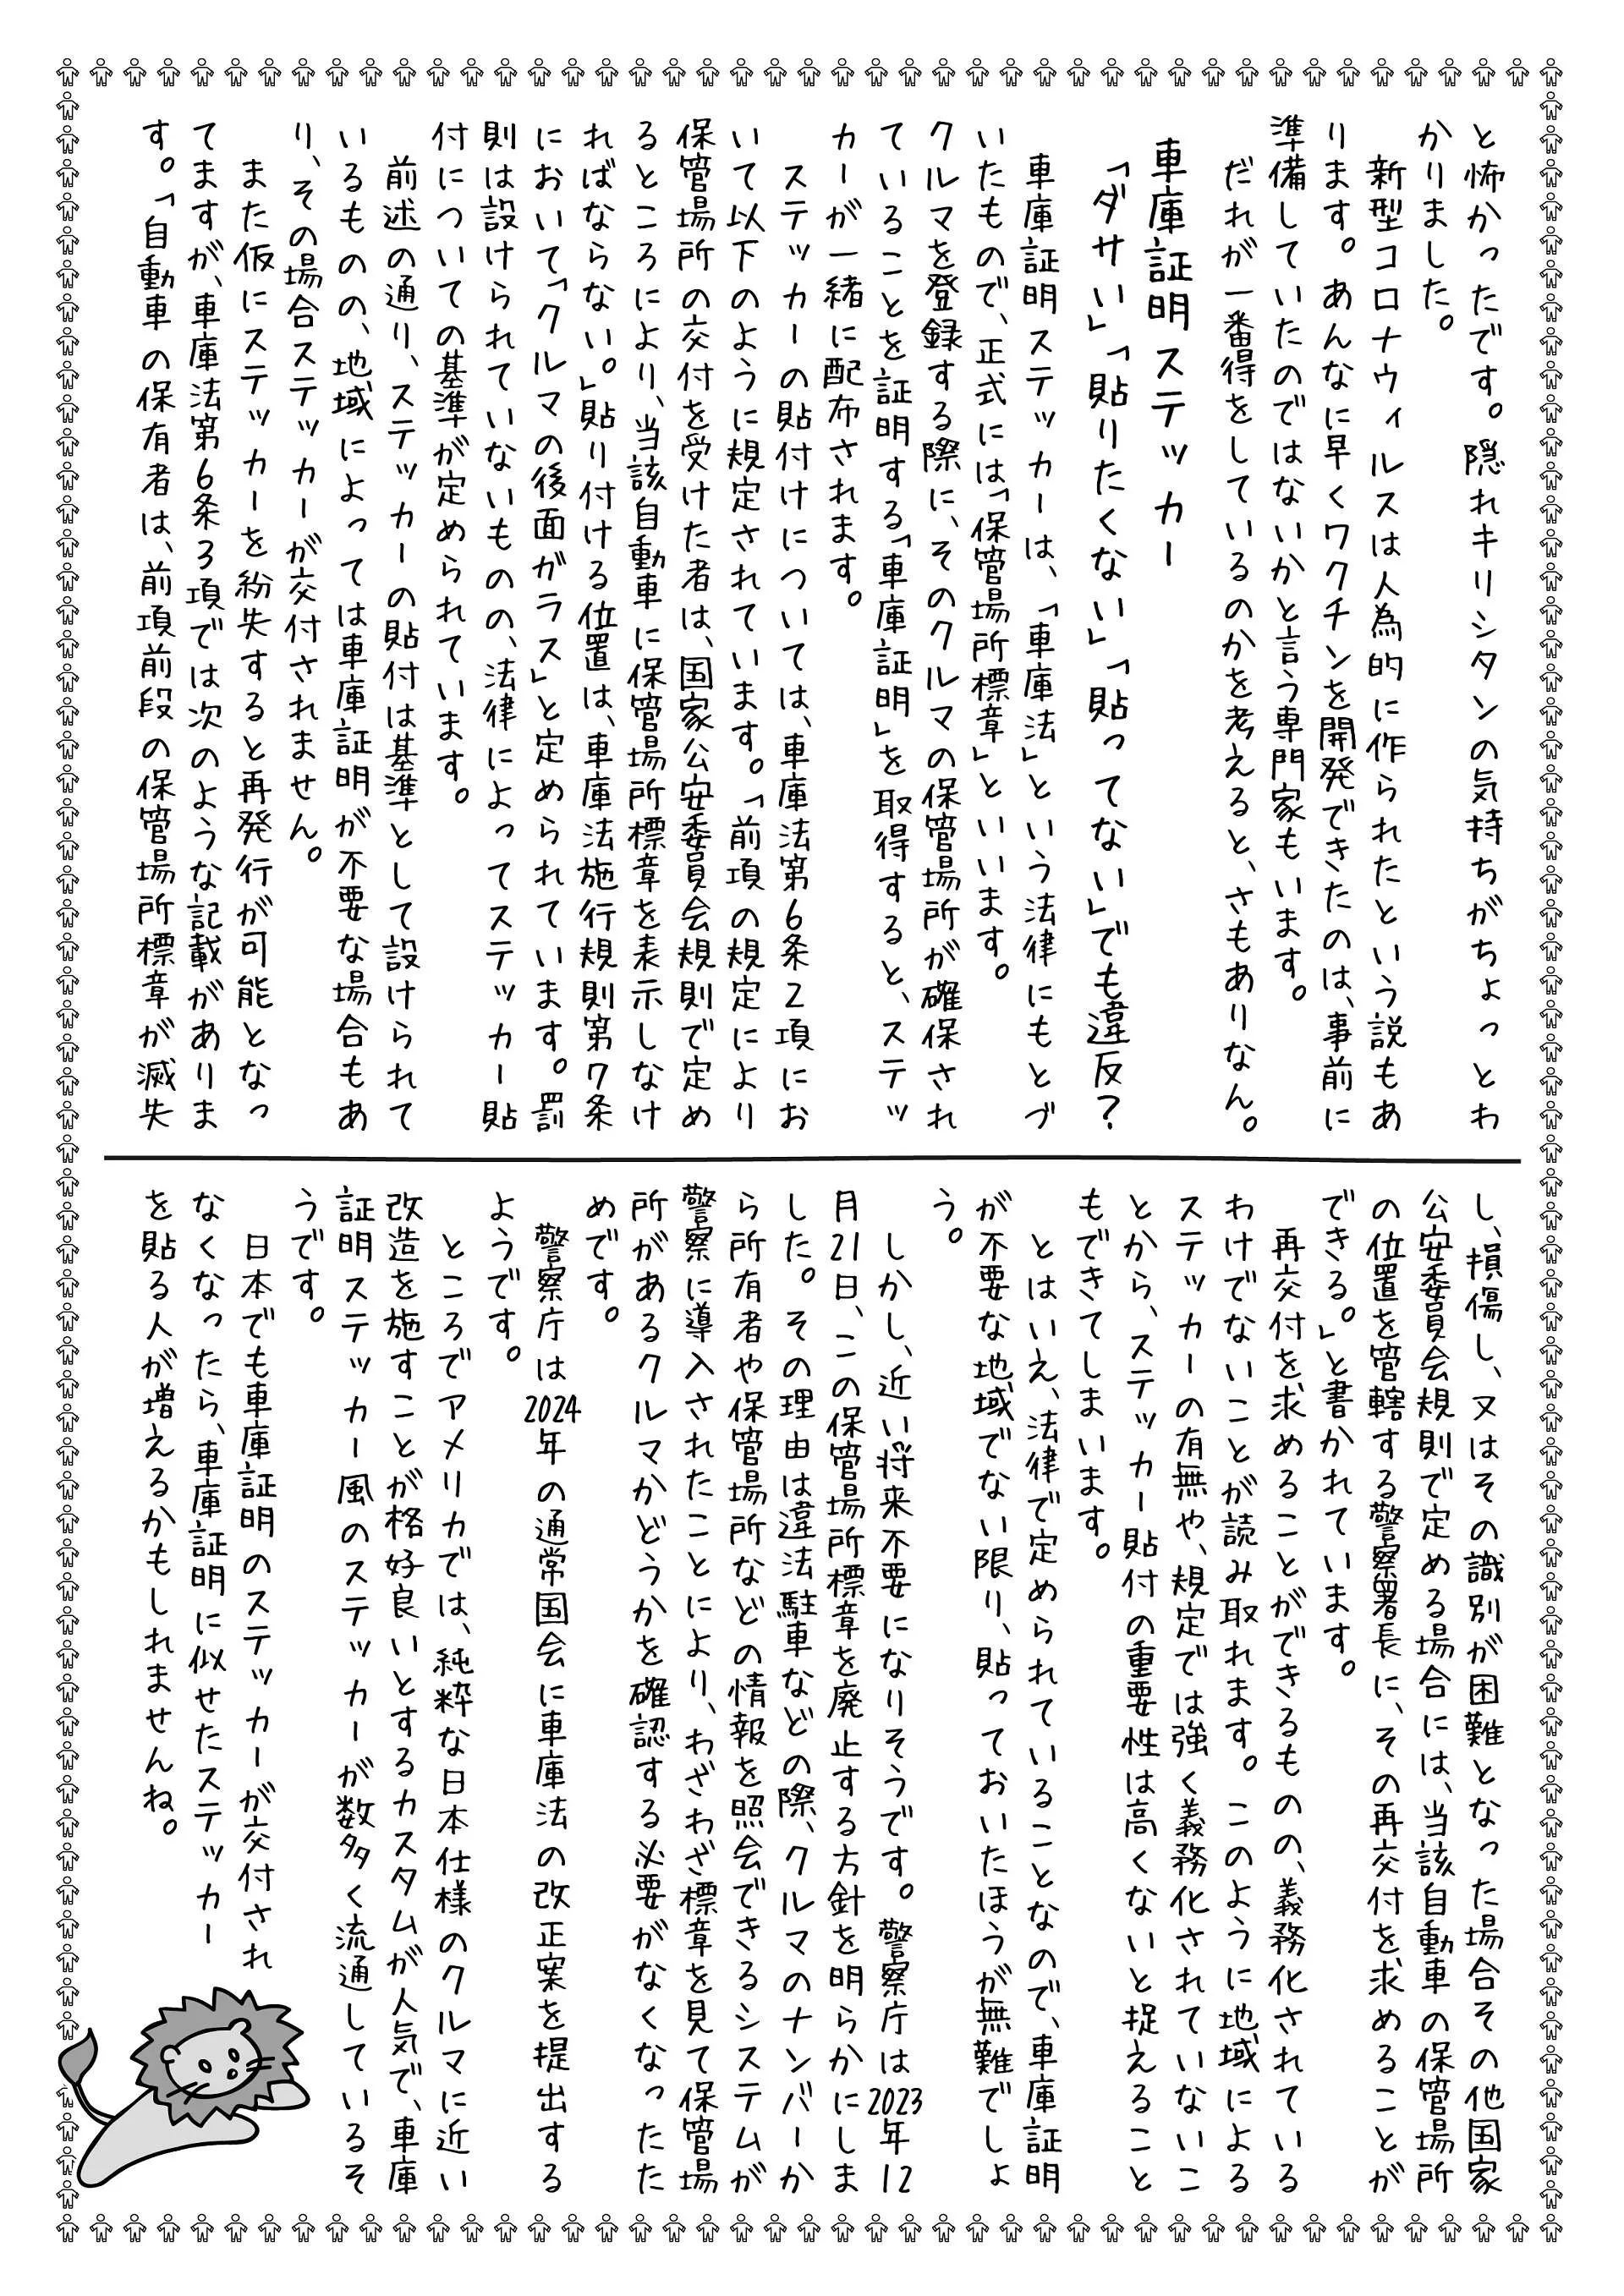 と怖かったです。隠れキリシタンの気持ちがちょっとわ
かりました。
新型コロナウィルスは人為的に作られたという説もあ
ります。あんなに早くワクチンを開発できたのは、事前に
準備していたのではないかと言う専門家もいます。
だれが一番得をしているのかを考えると、さもありなん。
車庫証明ステッカー
「ダサい」「貼りたくない」「貼ってない」でも違反？
車庫証明ステッカーは、「車庫法」という法律にもとづ
いたもので、正式には「保管場所標章」といいます。
クルマを登録する際に、そのクルマの保管場所が確保され
ていることを証明する「車庫証明」を取得すると、ステッ
カーが一緒に配布されます。
ステッカーの貼付けについては、車庫法第6条2項にお
いて以下のように規定されています。「前項の規定により
保管場所の交付を受けた者は、国家公安委員会規則で定め
るところにより、当該自動車に保管場所標章を表示しなけ
ればならない。」貼り付ける位置は、車庫法施行規則第7条
において「クルマの後面ガラス」と定められています。罰
則は設けられていないものの、法律によってステッカー貼
付についての基準が定められています。
前述の通り、ステッカーの貼付は基準として設けられて
いるものの、地域によっては車庫証明が不要な場合もあ
り、その場合ステッカーが交付されません。
また仮にステッカーを紛失すると再発行が可能となっ
てますが、車庫法第6条3項では次のような記載がありま
す。「自動車の保有者は、前項前段の保管場所標章が滅失
し、損傷し、又はその識別が困難となった場合その他国家
公安委員会規則で定める場合には、当該自動車の保管場所
の位置を管轄する警察署長に、その再交付を求めることが
できる。」と書かれています。
再交付を求めることができるものの、義務化されている
わけでないことが読み取れます。このように地域による
ステッカーの有無や、規定では強く義務化されていないこ
とから、ステッカー貼付の重要性は高くないと捉えること
もできてしまいます。
とはいえ、法律で定められていることなので、車庫証明
が不要な地域でない限り、貼っておいたほうが無難でしょ
う。
しかし、近い将来不要になりそうです。警察庁は2023年12
月21日、この保管場所標章を廃止する方針を明らかにしま
した。その理由は違法駐車などの際、クルマのナンバーか
ら所有者や保管場所などの情報を照会できるシステムが
警察に導入されたことにより、わざわざ標章を見て保管場
所があるクルマかどうかを確認する必要がなくなったた
めです。
警察庁は2024年の通常国会に車庫法の改正案を提出する
ようです。
ところでアメリカでは、純粋な日本仕様のクルマに近い
改造を施すことが格好良いとするカスタムが人気で、車庫
証明ステッカー風のステッカーが数多く流通しているそ
うです。
日本でも車庫証明のステッカーが交付され
なくなったら、車庫証明に似せたステッカー
を貼る人が増えるかもしれませんね。